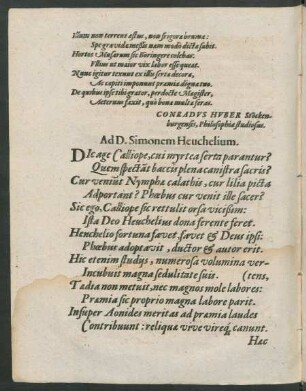 Illum non terrent æstus, non frigora brumæ:
Spe gravida messis nam modò dicta subit.
Hortos Musarum sic Heringere colebas:
Vllius ut maior vix labor esse queat.
Nunc igitur texunt ex illis serta decora,
Ac capiti imponunt præmia digna tuo.
De quibus ipse tibi grator, perdocte Magister,
Aeternum faxit, quò bona multa feras.
CONRADVS HVBER
burgensis, Philosophiæ studiosus.
Ad D. Simonem Heuchelium.
DIc age Calliope, cui myrtea serta parantur?
Quem spectāt baccis plena canistra sacris?
Cur veniūt Nymphæ calathis, cur lilia picta
Adportant? Phœbus cur venit ille sacer?
Sic ego. Calliope sic retulit orsa vicißim:
Ista Deo Heuchelius dona ferente feret.
Heuchelio fortuna favet. favet & Deus ipsi:
Phœbus adoptavit, ductor & autor erit.
Hic etenim studijs, numerosa volumina ver-
Incubuit magna sedulitate suis. (tens,
Tædia non metuit, nec magnos mole labores:
Præmia sic proprio magna labore parit.
Insuper Aonides meritas ad præmia laudes
Contribuunt: reliquæ vive vireq́; canunt.
Hac